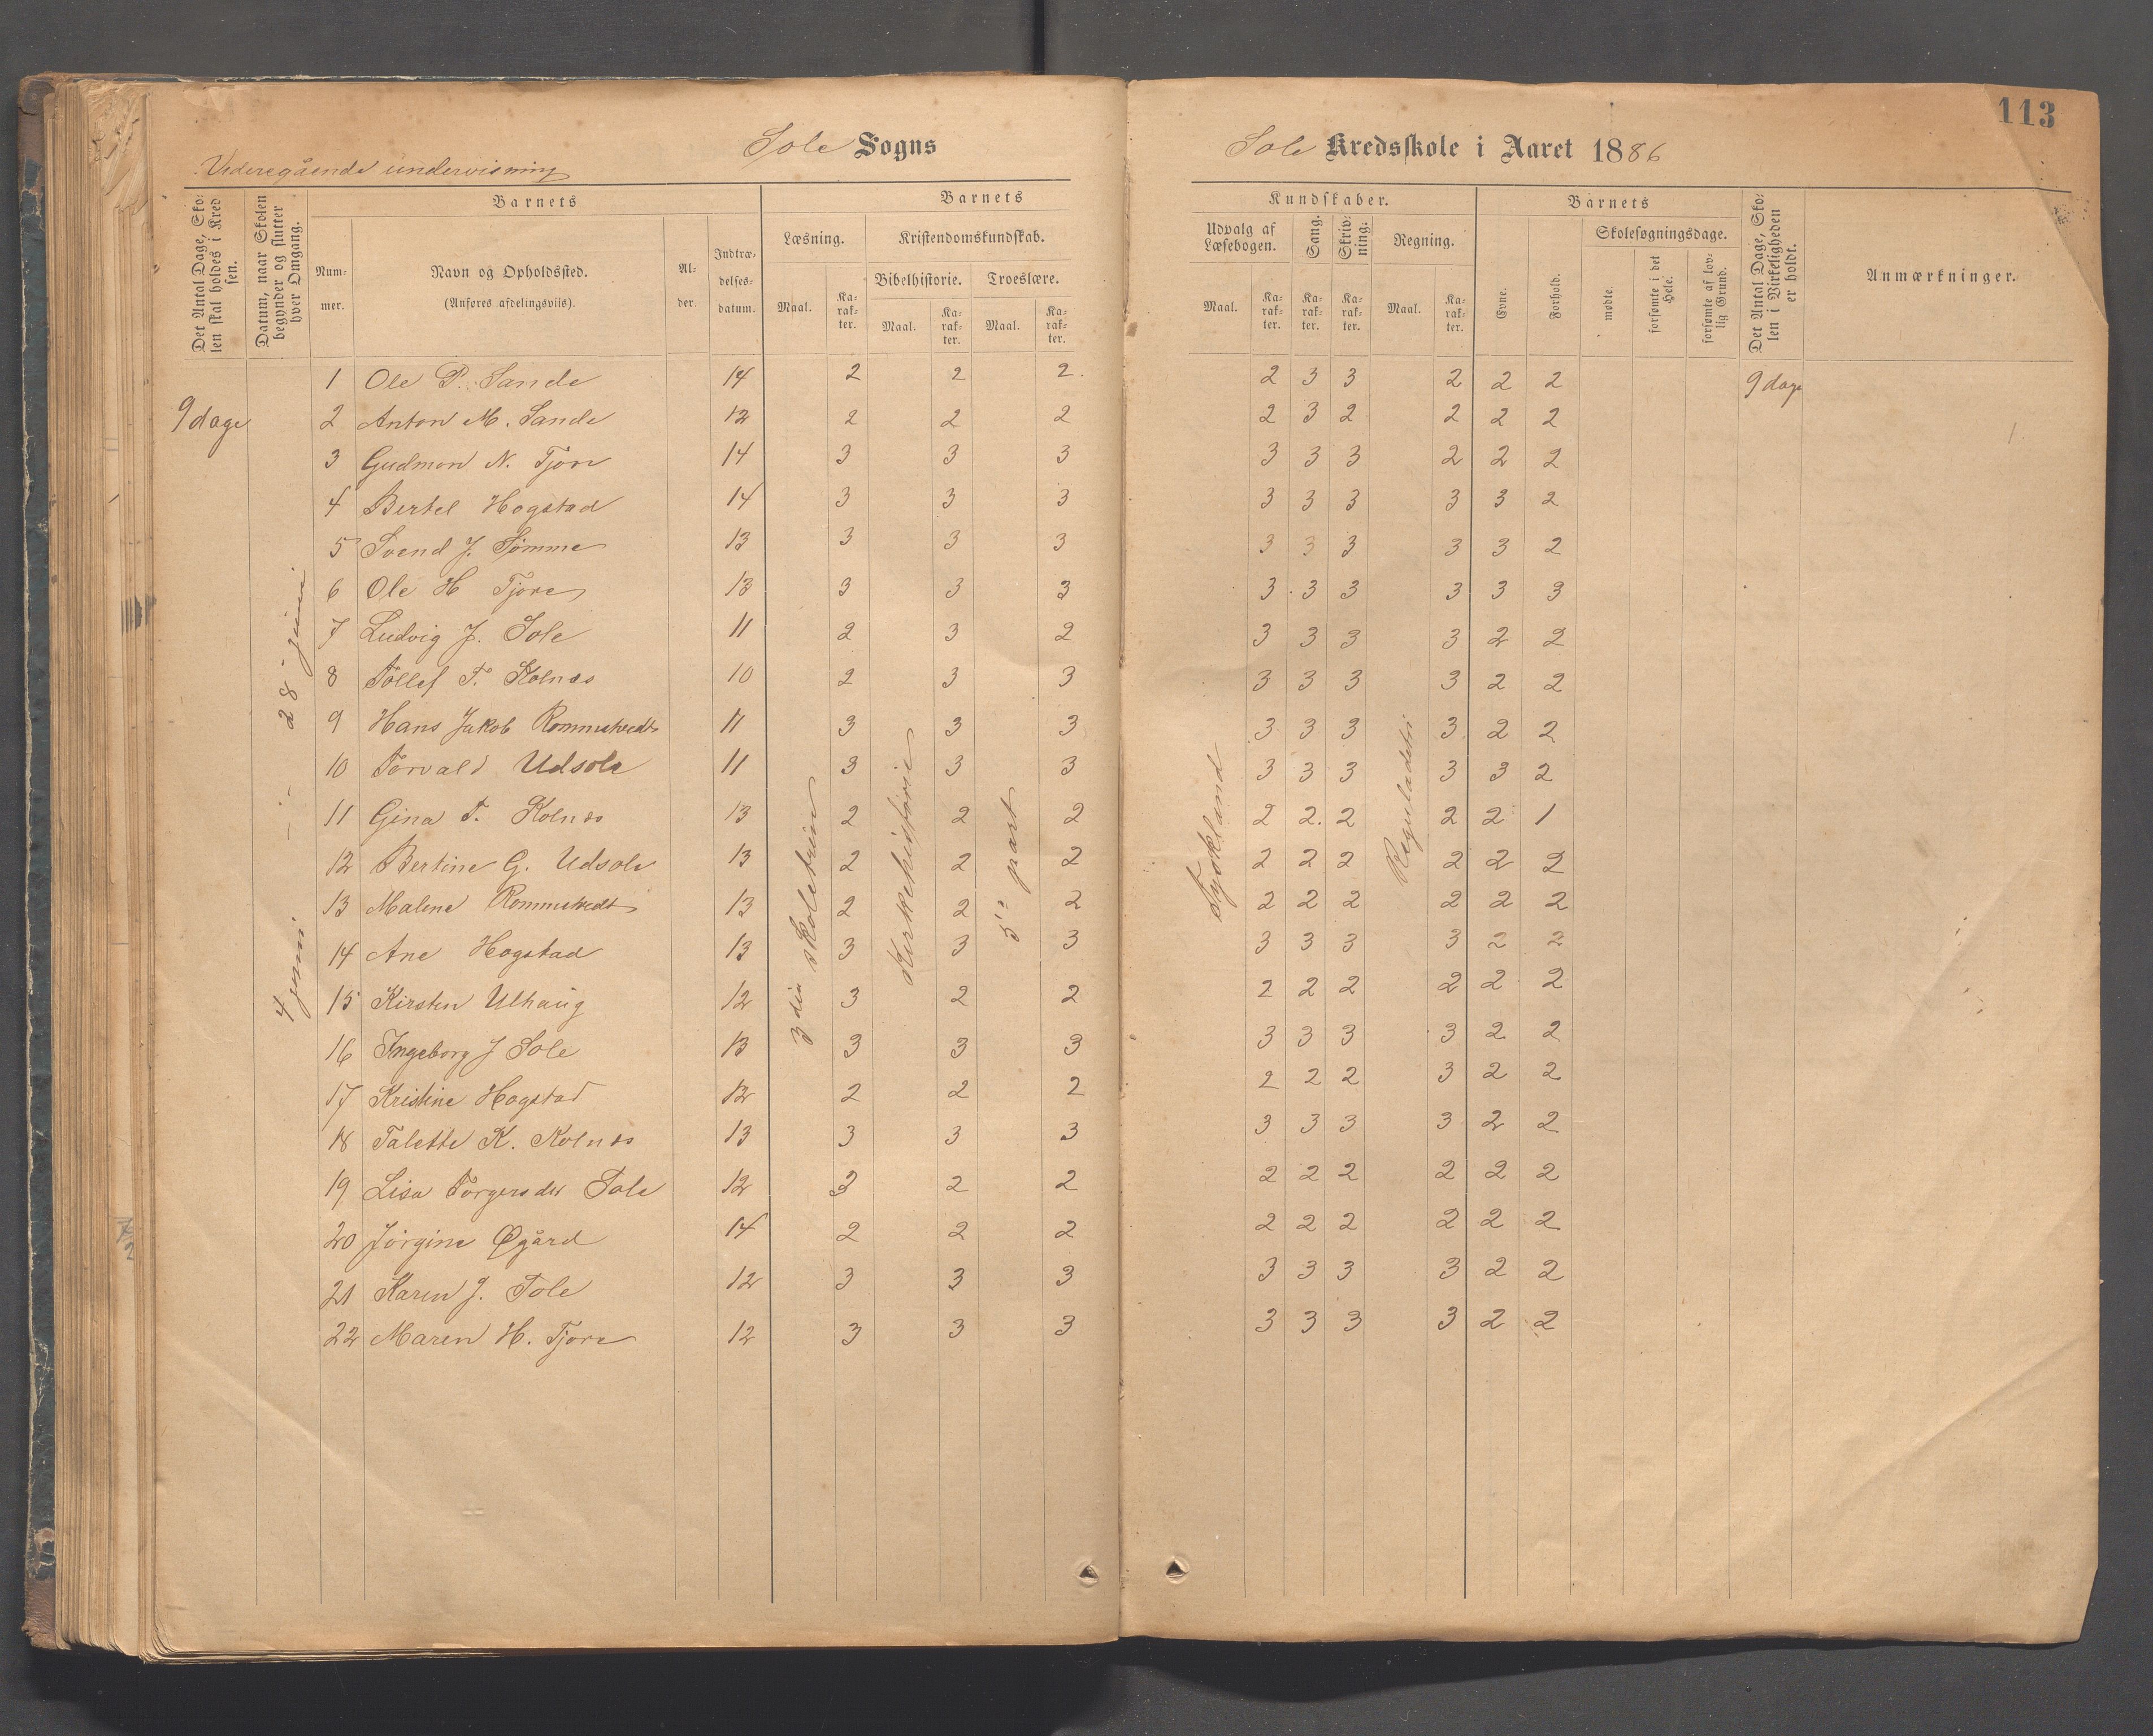 113
Sole Sogns
Sole Kredsskole i Aaret 1886
Videregående undervisning
Det Antal Dage, Skolen skal holdes i Kredsen.
Datum, naar Skolen begynder og slutter hver Omgang.
Barnets
Nummer.
Navn og Opholdssted.
(Anføres afdelingsviis).
Alder.
Indtrædelsesdatum.
Barnets
Læsning.
Maal.
Karakter.
Kristendomskundskab.
Bibelhistorie.
Maal.
Karakter.
Troeslære.
Maal.
Karakter.
Kundskaber.
Udvalg af Læsebogen.
Maal.
Karakter.
Sang.
Karakter.
Skrivning.
Karakter.
Regning.
Maal.
Karakter.
Barnets
Evne.
Forhold.
Skolesøgningsdage.
mødte.
forsømte i det Hele.
forsømte af lovlig Grund.
Det Antal Dage, Skolen i Virkeligheden er holdt.
Anmærkninger.
9 dage
4 juni - 28 juni
3die skoletrin
Kirkehistorie
3' part
Tyskland
Reguladetri
9 dage
1 Ole P. Sande 14 2 2 2. 2 3 3 2 2 2
2 Anton M. Sande 12 2 2 2 2 3 2 2 2 2
3 Gudmon N. Tjore 14 3 3 3 3 3 3 2 2 2
4 Bertel Hogstad 14 3 3 3 3 3 3 3 3 2
5 Svend J. Sømme 13 3 3 3 3 3 3 3 3 2
6 Ole H Tjore 13 3 3 3 3 3 3 3 3 3
7 Ludvig J. Sole 11 2 3 2 3 3 3 3 2 2
8 Tollef T. Kolnes 10 2 3 3 3 3 3 3 2 2
9 Hans Jakob Rommetvedt 11 3 3 3 3 3 3 3 2 2
10 Torvald Udsola 11 3 3 3 3 3 3 3 3 2
11 Gina T. Kolnes 13 2 2 2 2 2. 2 2 2 1
12 Bertine G. Udsola 13 2 2 2 2 2 2 2 2 2
13 Malene Rommetvedt 13 2 2 2 2 2 2 2 2 2
14 Ane Hogstad 13 3 3 3 3 3 3 3 2 2
15 Kirsten Ulhaug 12 3 2 2 2 2 2 2 2 2
16 Ingeborg J Sole 13 3 3 3 3 3 3 3 2 2
17 Kristine Hogstad 12 2 2 2 2 2 2 3 2 2
18 Talette K. Kolnes 13 3 3 3 3 3 3 3 2 2
19 Lisa Torgersdtr Sole 12 3 2 2 2 2 2 2 2 2
20 Jørgine Øgård 14 2 2 2 2 2 2 2 2 2
21 Karen J. Sole 12 3 3 3 3 3 3 3 2 2
22 Maren H. Tjora 12 3 3 3 3 3 3 3 2 2